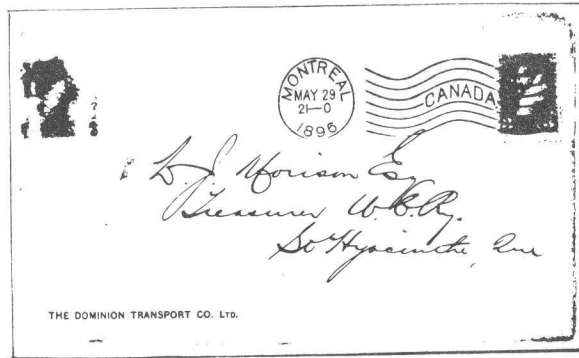 MONTREAL
MAY 29
21-0
1896
CANADA
Morison Esq
Treasurer U.C.Ry.
St Hyacinthe, Que
THE DOMINION TRANSPORT CO. LTD.